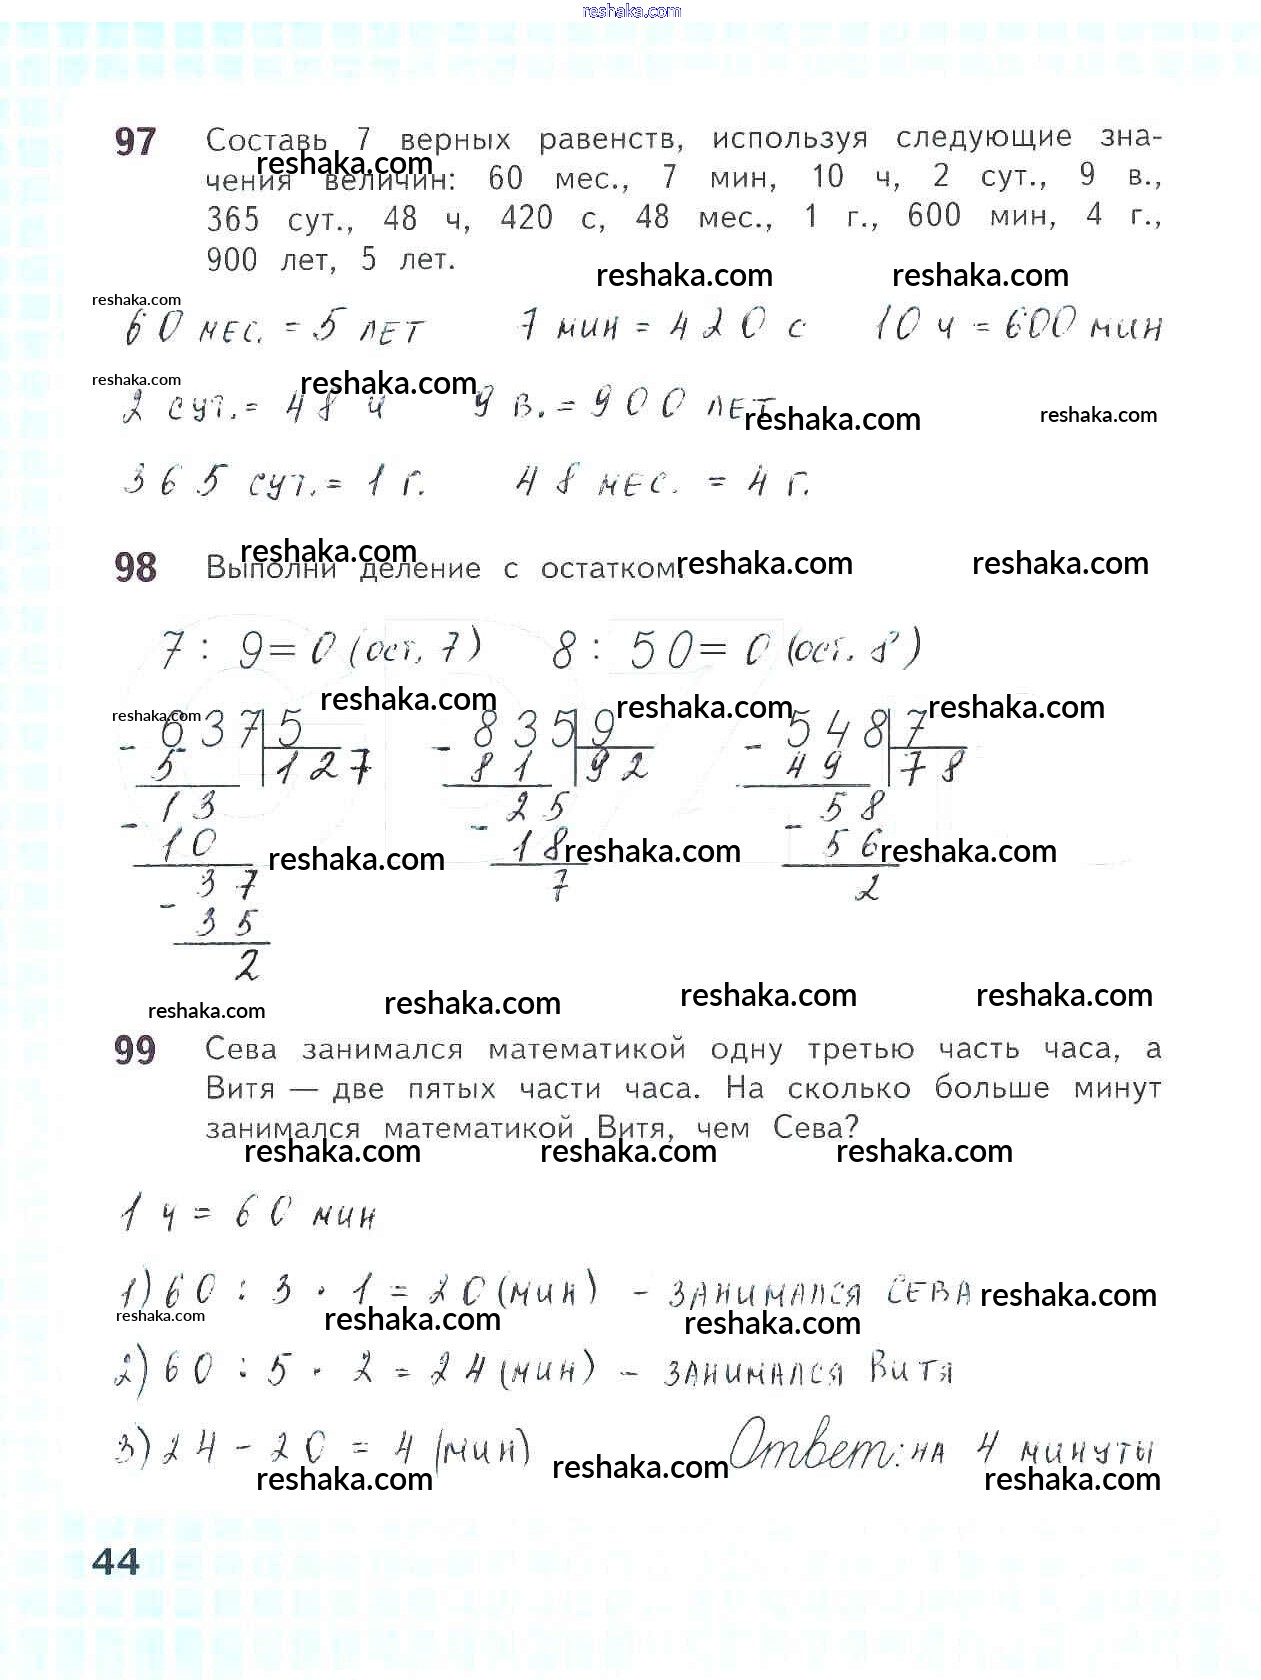 reshaka.com
97 Составь 7 верных равенств, используя следующие зна-
reshaka.com
чения величин: 60 мес., 7 мин, 10 ч, 2 сут., 9 в.,
365 сут., 48 ч, 420 с, 48 мес., 1 г., 600 мин, 4 г.,
900 лет, 5 лет.
reshaka.com reshaka.com
reshaka.com
60 мес. = 5 лет 7 мин = 420 с 10 ч = 600 мин
reshaka.com reshaka.com
2 сут. = 48 ч 9 в. = 900 лет
reshaka.com reshaka.com
365 сут. = 1 г. 48 мес. = 4 г.
reshaka.com
98 Выполни деление с остатком.
reshaka.com reshaka.com
7 : 9 = 0 (ост. 7) 8 : 50 = 0 (ост. 8)
reshaka.com reshaka.com reshaka.com reshaka.com
- 637 5 - 835 9 - 548 7
5 127 81 92 49 78
- 13 - 25 - 58
10 18 56
reshaka.com reshaka.com reshaka.com
- 37 7 2
35
2
reshaka.com reshaka.com reshaka.com reshaka.com
99 Сева занимался математикой одну третью часть часа, а
Витя — две пятых части часа. На сколько больше минут
занимался математикой Витя, чем Сева?
reshaka.com reshaka.com reshaka.com
1 ч = 60 мин
1) 60 : 3 · 1 = 20 (мин) - занимался Сева
reshaka.com
reshaka.com reshaka.com reshaka.com
2) 60 : 5 · 2 = 24 (мин) - занимался Витя
3) 24 - 20 = 4 (мин) Ответ: на 4 минуты
reshaka.com reshaka.com reshaka.com
44